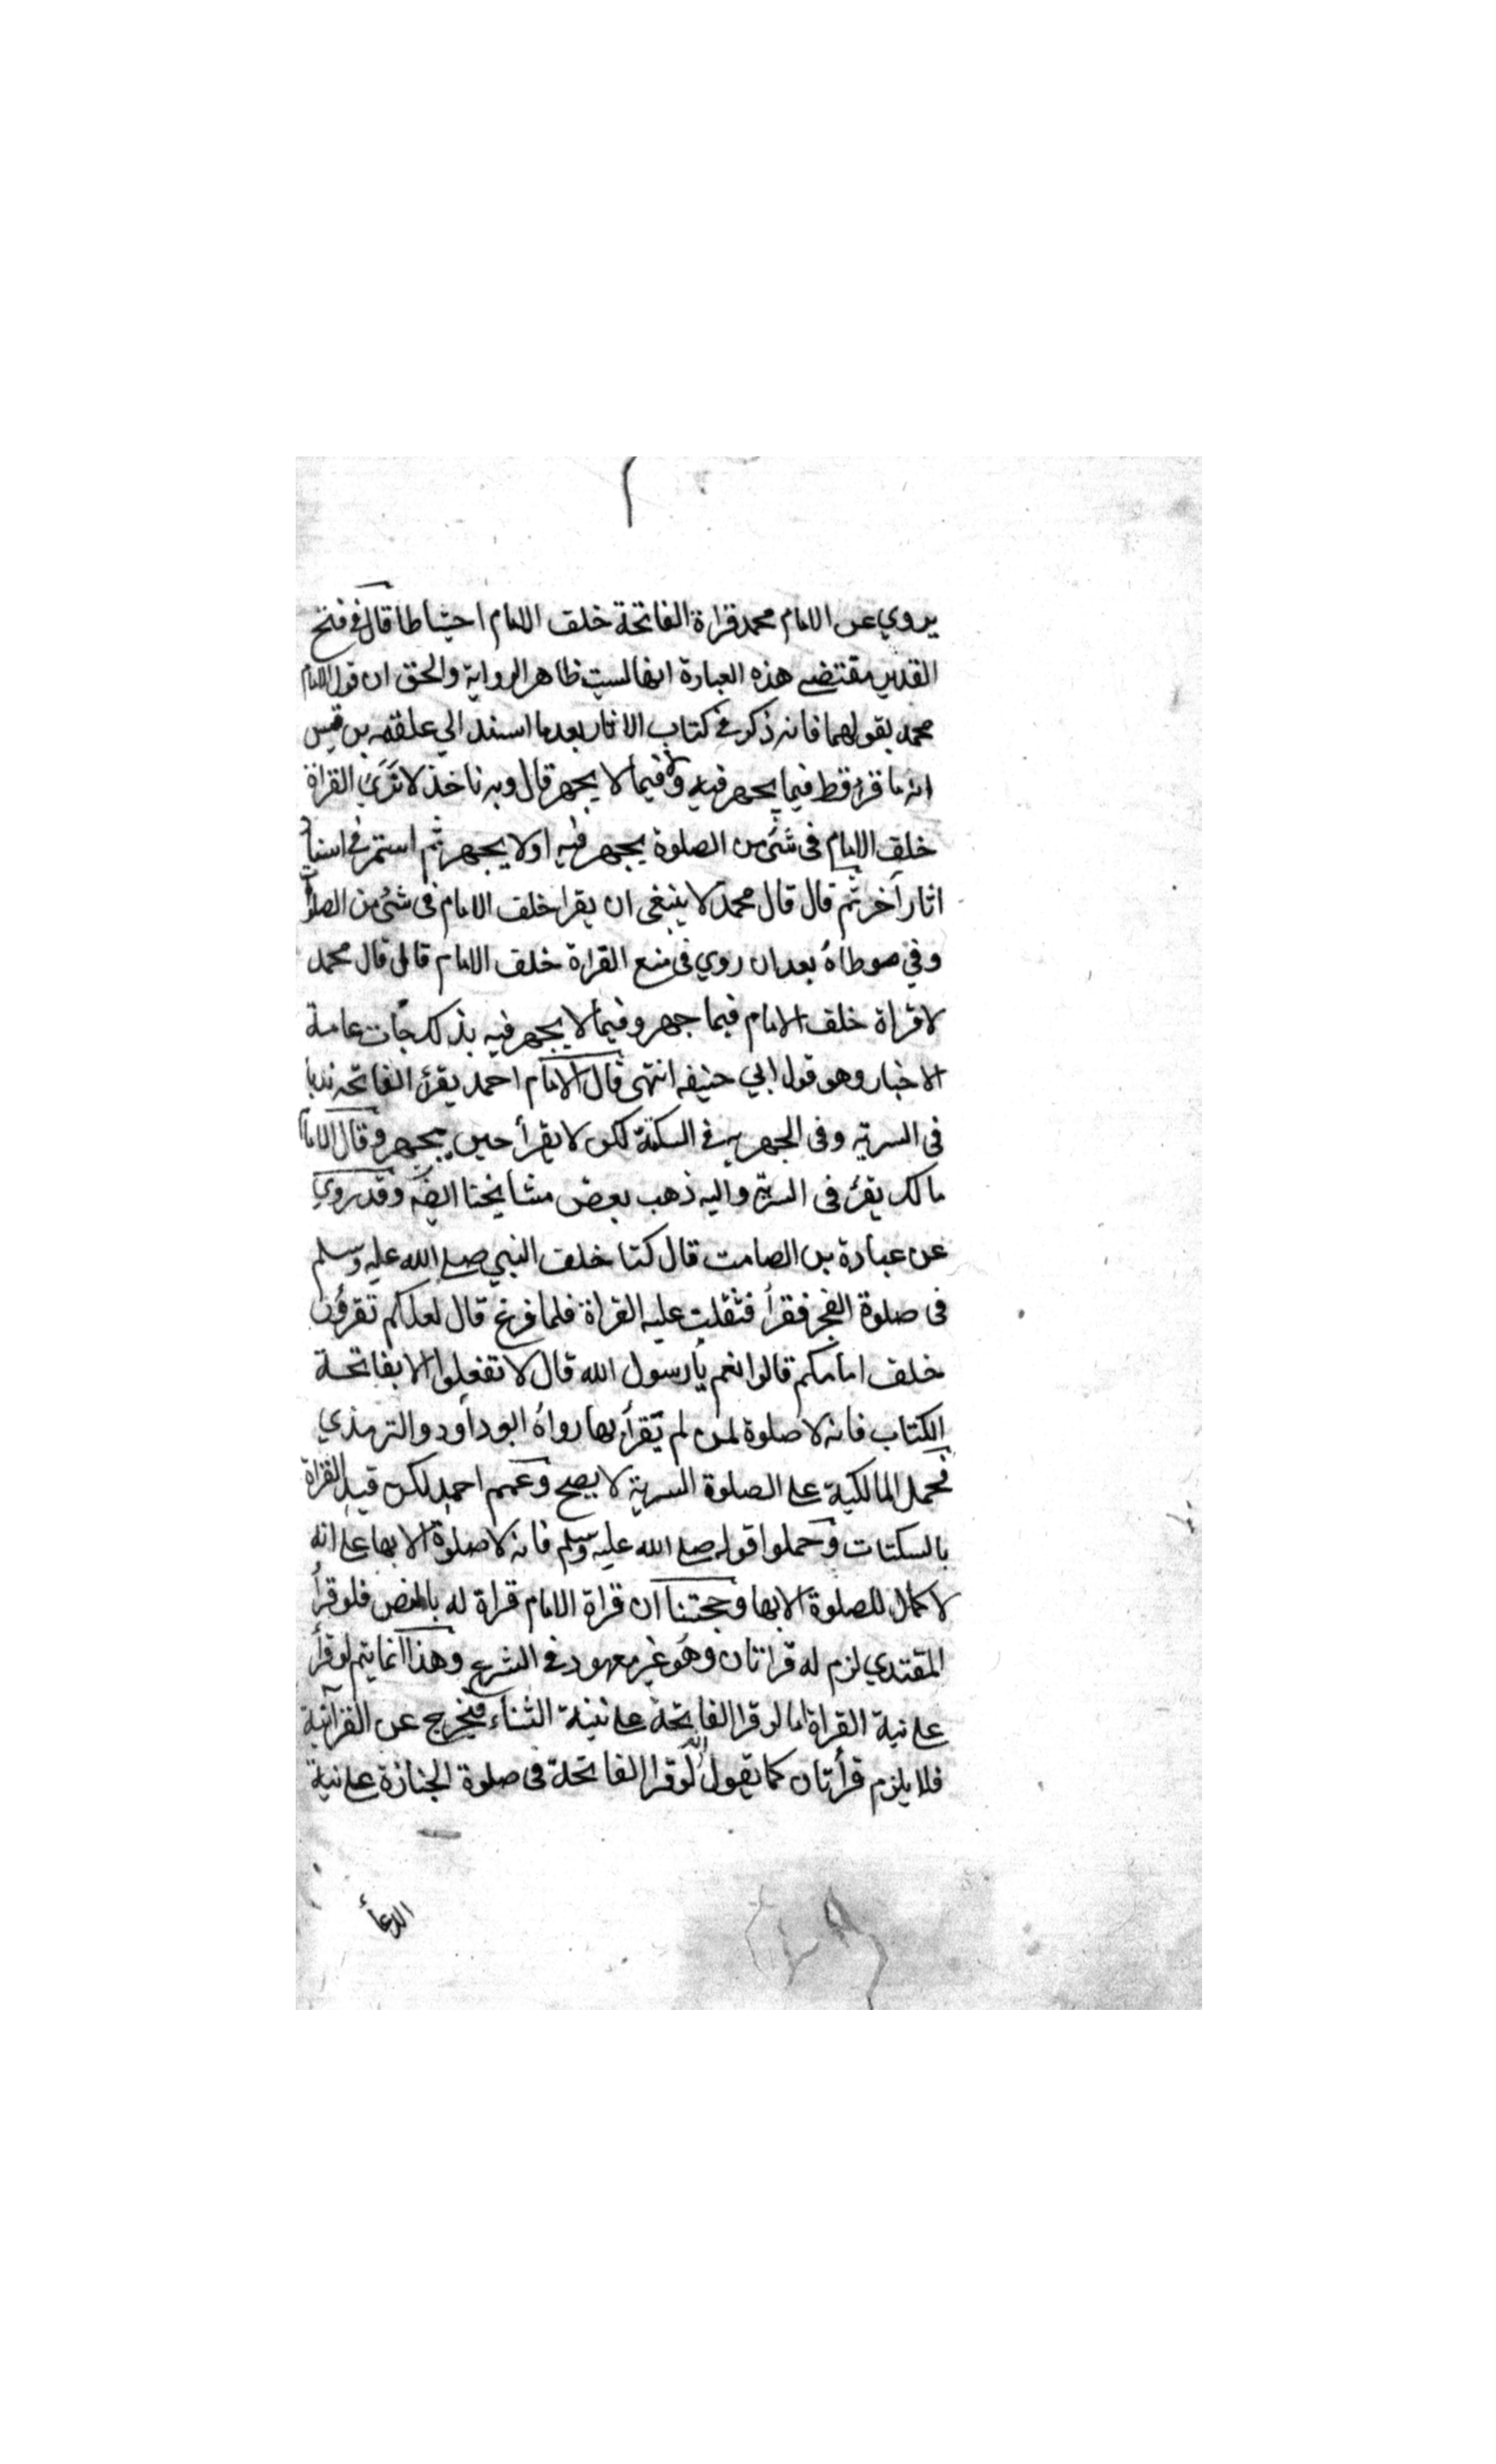 يروي عن الامام محمد قراة الفاتحة خلف الامام احتياطا قال في فتح
القدير مقتضى هذه العبارة انها ليست ظاهر الرواية والحق ان قول الامام
محمد بقولهما فانه ذكر في كتاب الاثار بعد ما اسند الي علقمه بن قيس
انه ما قرء قط فيما يجهر فيه ولا فيما لا يجهر قال وبه ناخذ لا نرى القراة
خلف الامام في شئ من الصلوة يجهر فيه او لا يجهر ثم استمر في اسناد
اثار آخر ثم قال قال محمد لا ينبغي ان يقرا خلف الامام في شئ من الصلوة
وفي موطاه بعد ان روي في منع القراة خلف الامام قال قال محمد
لا قراة خلف الامام فيما جهر وفيما لا يجهر فيه بذلك جأت عامة
الاخبار وهو قول ابي حنيفه انتهى قال الامام احمد يقرء الفاتحه ندبا
في السرية وفي الجهرية في السكتة لكن لا يقرأ حين يجهر وقال الامام
مالك يقرء في السرية واليه ذهب بعض مشايخنا ايضا وقد روي
عن عبادة بن الصامت قال كنا خلف النبي صلى الله عليه وسلم
في صلوة الفجر فقرأ فثقلت عليه القراة فلما فرغ قال لعلكم تقرؤن
خلف امامكم قالوا نعم يا رسول الله قال لا تفعلوا الا بفاتحة
الكتاب فانه لا صلوة لمن لم يقرأ بها رواه ابو داود والترمذي
فحمل المالكية على الصلوة السرية لا يصح وعمم احمد لكن قيد القراة
بالسكتات وحملوا قوله صلى الله عليه وسلم فانه لا صلوة الا بها على انه
لا كمال للصلوة الا بها وحجتنا ان قراة الامام قراة له بالنص فلو قرأ
المقتدي لزم له قراتان وهو غير معهود في الشرع وهذا انما يتم لو قرأ
على نية القراة اما لو قرا الفاتحة على نية الثناء فيخرج عن القرآنية
فلا يلزم قرأتان كما يقول لو قرا الفاتحة في صلوة الجنازة على نية
الدعأ